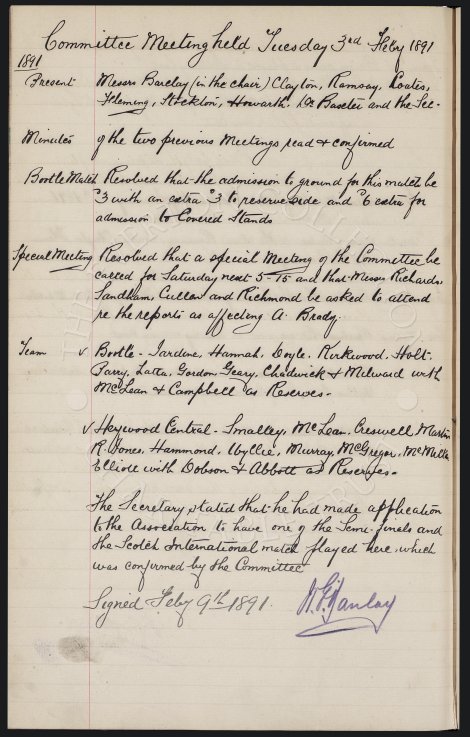 Committee Meeting held Tuesday 3rd Feby 1891
1891
Present Messrs Barclay (in the chair) Clayton, Ramsay, Coates,
Fleming, Stockton, Howarth. Dr Baxter and the Sec-
Minutes of the two previous Meetings read & confirmed
Bootle Match Resolved that the admission to ground for this match be
3 with an extra 3 to reserve side and 6 extra for
admission to Covered Stands
Special Meeting Resolved that a special Meeting of the Committee be
called for Saturday next 5-15 and that Messrs Richards,
Sandham, Cullen and Richmond be asked to attend
re the reports as affecting A. Brady.
Team v Bootle - Jardine, Hannah, Doyle, Kirkwood, Holt.
Parry, Latta, Gordon, Geary, Chadwick & Milward with
McLean & Campbell as Reserves.
v Heywood Central - Smalley, McLean, Creswell, Martin
R. Jones, Hammond, Wyllie, Murray, McGregor,
Elliott with Dobson & Abbott as Reserves.
The Secretary stated that he had made application
to the Association to have one of the Semi-finals and
the Scotch International match played here, which
was confirmed by the Committee
Signed Feby 9th 1891.